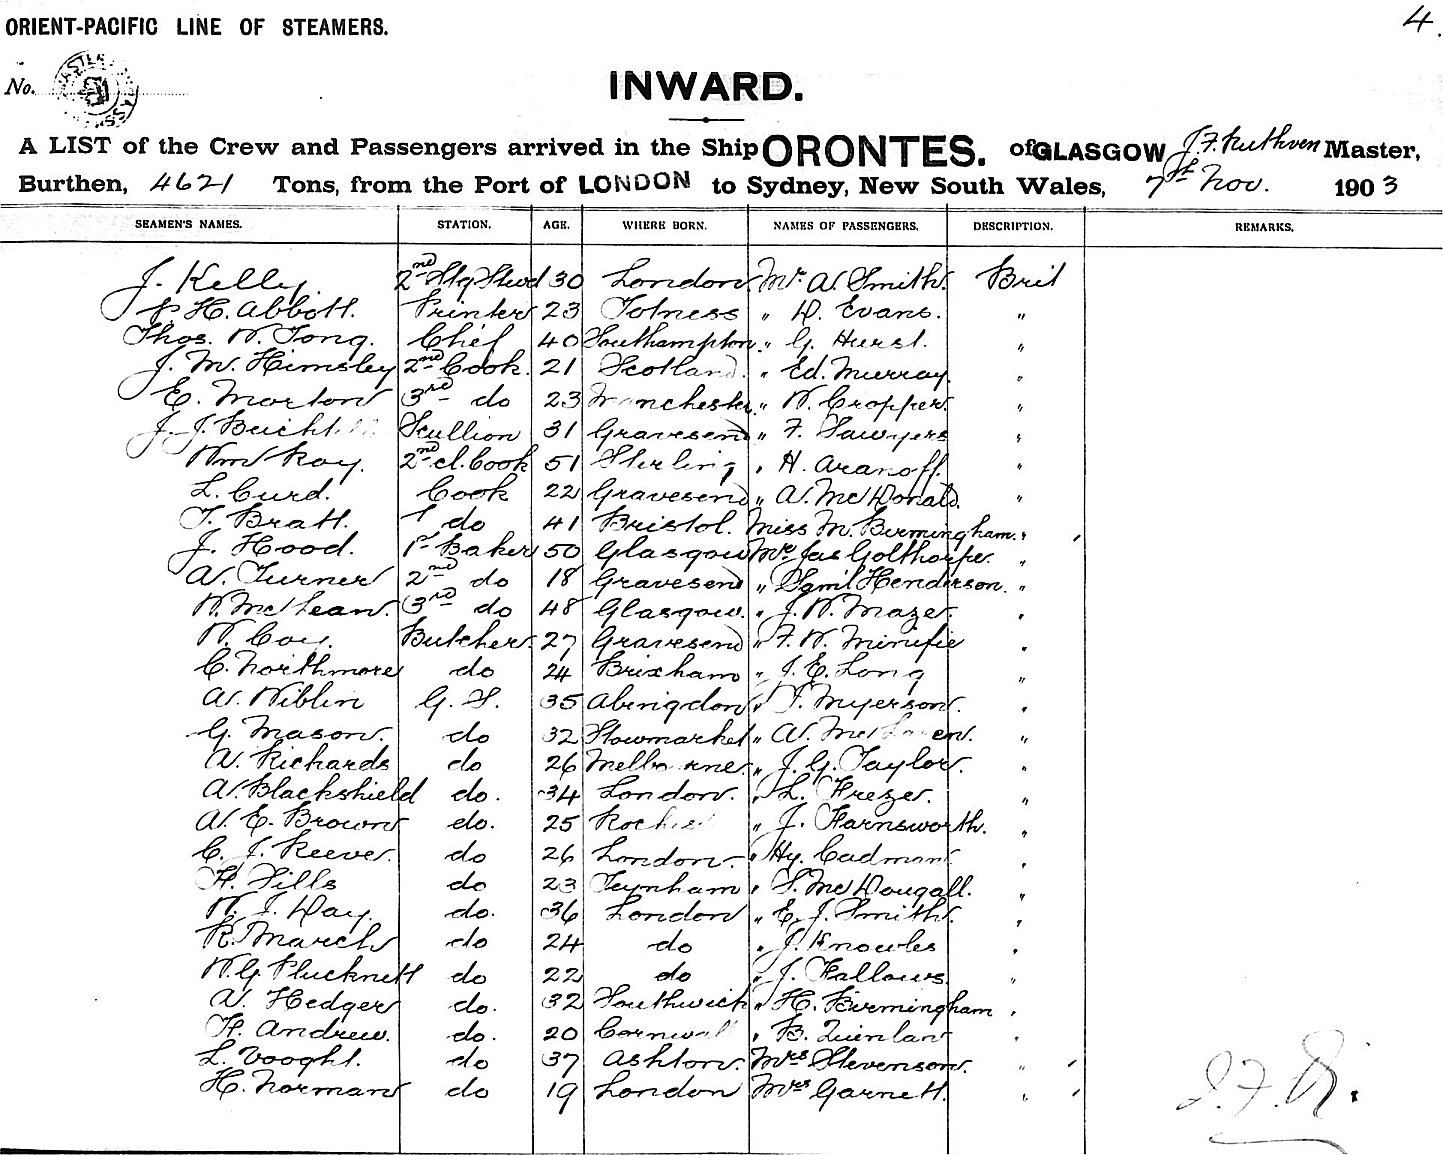 4.
ORIENT-PACIFIC LINE OF STEAMERS.
No.
INWARD.
A LIST of the Crew and Passengers arrived in the Ship ORONTES. of GLASGOW J. F. Ruthven Master,
Burthen, 4621 Tons, from the Port of LONDON to Sydney, New South Wales, 7th Nov. 1903
SEAMEN'S NAMES. STATION. AGE. WHERE BORN. NAMES OF PASSENGERS. DESCRIPTION. REMARKS.
J. Kelly. 2nd Stg Stwd 30 London. Mr. A. Smith. Brit
H. Abbott. Printer 23 Totness " D. Evans. "
Thos. W. Tong. Chief 40 Southampton. " G. Hurst. "
J. M. Himsley 2nd Cook. 21 Scotland. " Ed. Murray. "
E. Morton 3rd do 23 Manchester. " W. Cropper. "
J. J. Scullion 31 Gravesend " F. Sawyers "
Wm Roy. 2nd cl. Cook 51 Sterling " H. Aranoff. "
L. Curd. Cook 22 Gravesend " A. McDonald. "
T. Bratt. do 41 Bristol. Miss M. Birmingham. "
J. Hood. 1st Baker 50 Glasgow Mr Jas Golthorpe. "
A. Turner 2nd do 18 Gravesend " Saml Henderson. "
W. McLean. 3rd do 48 Glasgow. " J. W. Maze. "
W. Coy. Butcher. 27 Gravesend " F. W. Minifie "
C. Northmore do 24 Brixham " J. E. Long "
A. Niblin G. S. 35 Abingdon " T. Myerson. "
G. Mason. do 32 Stowmarket " A. "
A. Richards do 26 Melbourne. " J. G. Taylor. "
A. Blackshield do. 34 London. " L. Frezer. "
A. E. Brown do. 25 " J. Farnsworth. "
C. J. Reeve. do 26 London. " Hy. Cadman. "
H. Fills do 23 Teynham " S. McDougall. "
W. J. Day. do. 36 London " E. J. Smith. "
R. March do 24 do " J. Knowles "
W. G. Plucknett do 22 do " J. Fallows. "
A. Hedger do. 32 Southwick " H. Birmingham "
H. Andrew. do. 20 Cornwall " B. Quinlan "
L. Vooght. do 37 Ashton. Mrs Stevenson. "
H. Norman do 19 London Mrs Garnett. "
J. F. R.